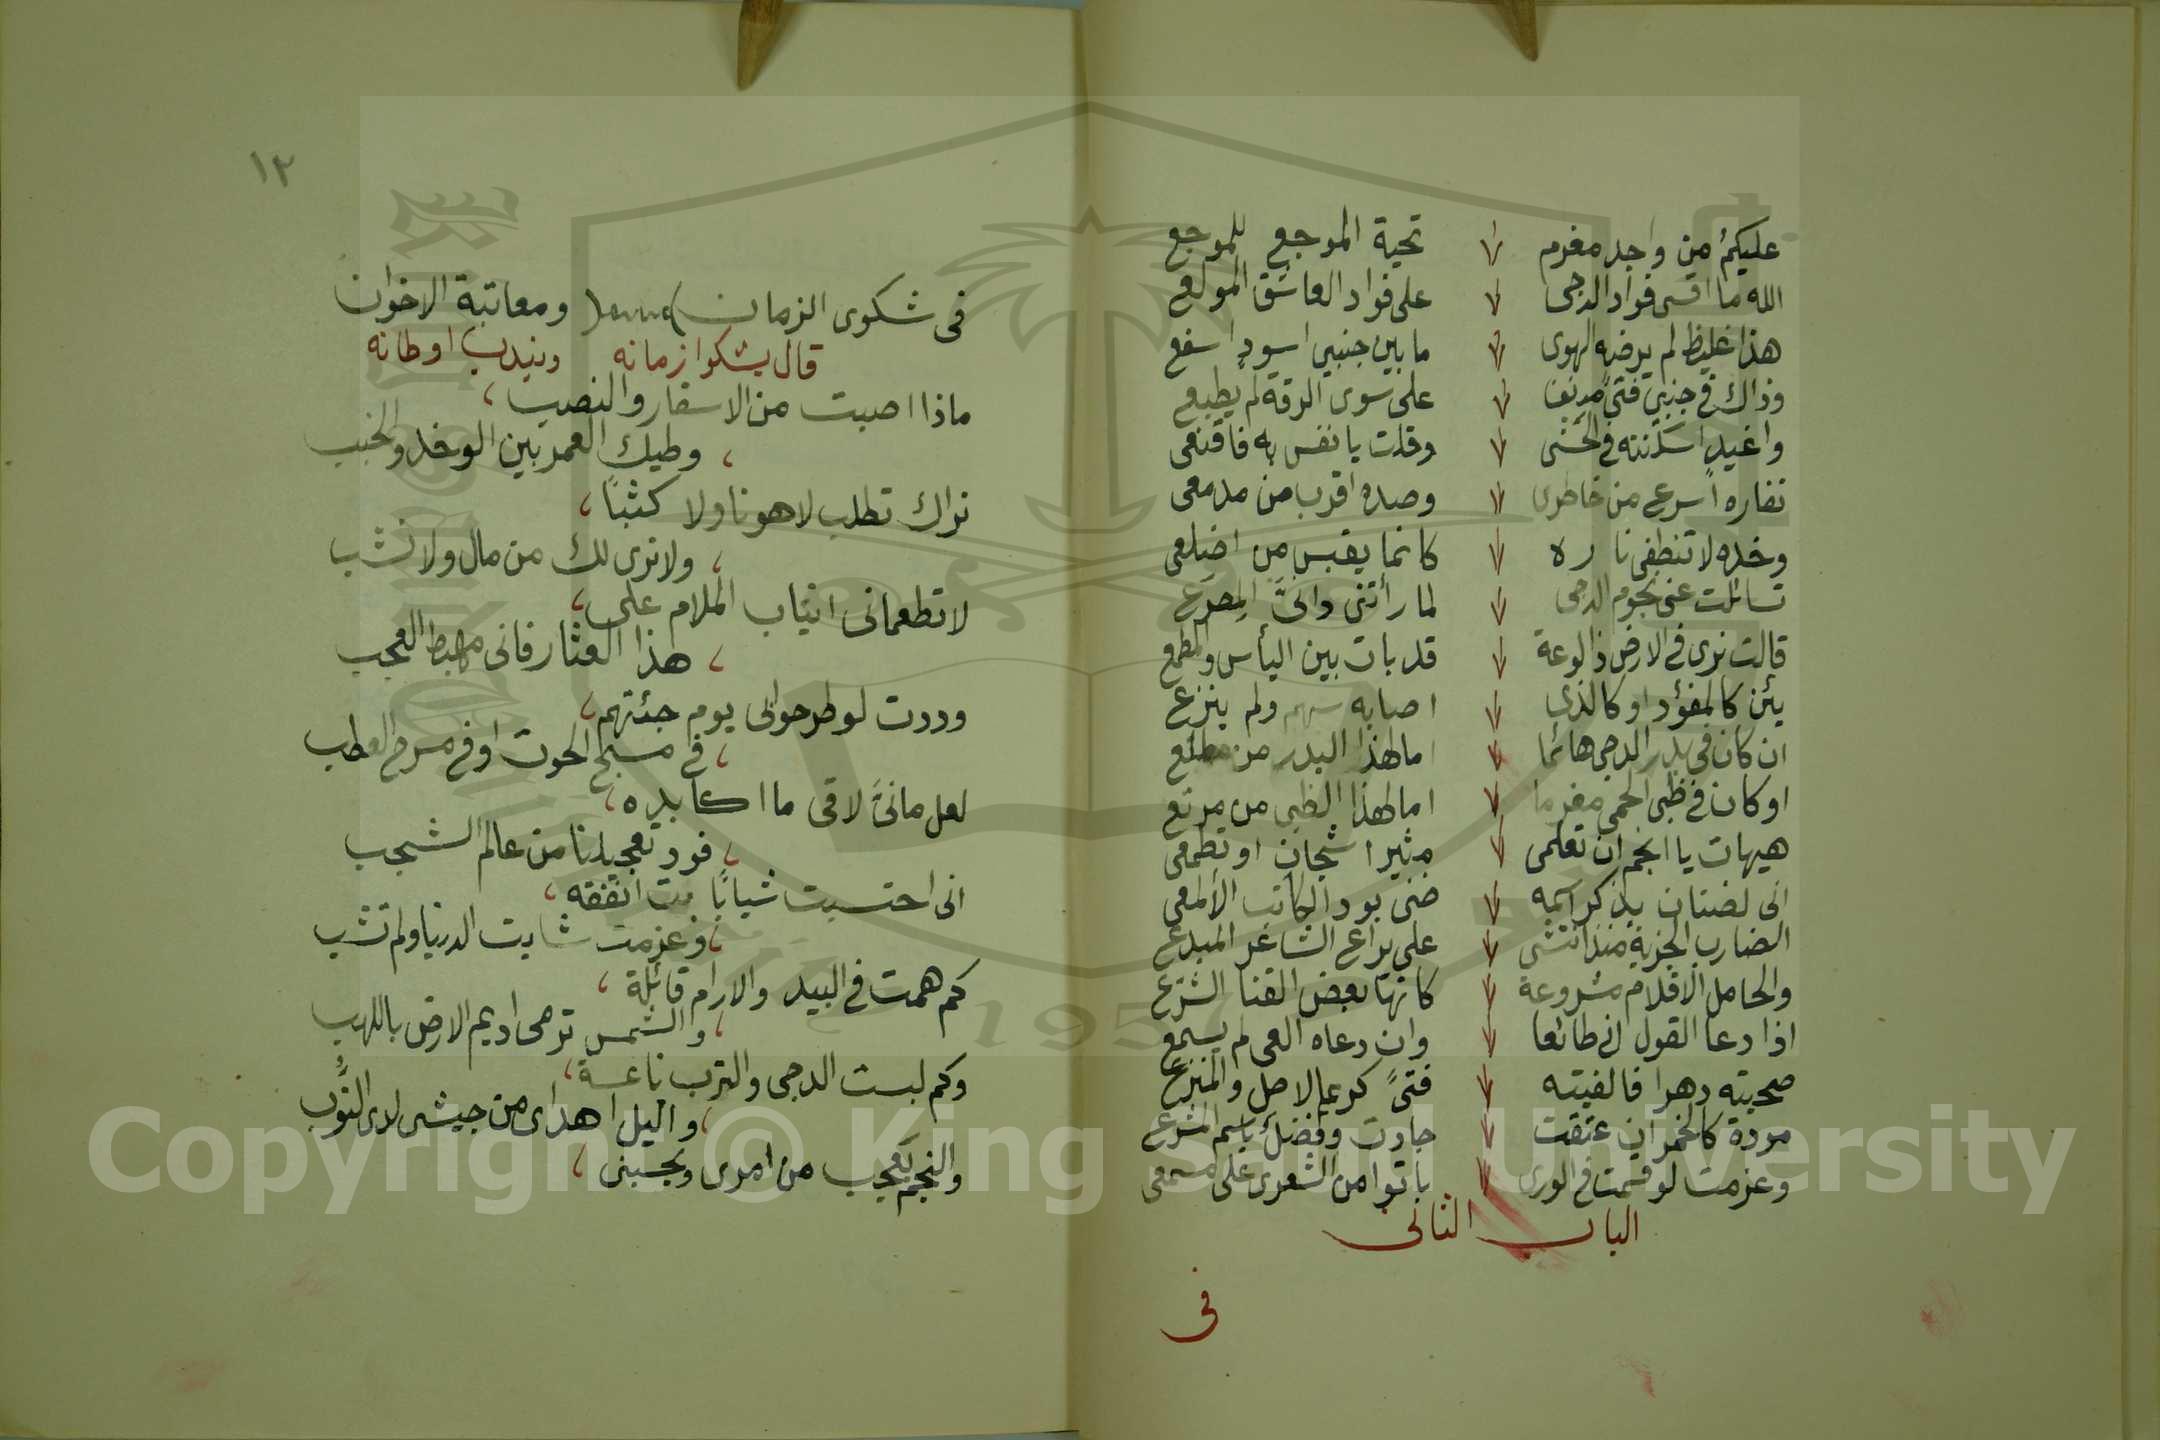 عليكمُ من واجد مغرم تحية الموجع للموجع
الله ما اقسى فواد الدجى على فواد العاشق المولع
هذا غليظ لم يرضه الهوى ما بين جنبي اسودٍ اسفع
وذاك في جنبي فتىً مدنف على سوى الرقة لم يطبع
واغيدٍ اسكنته في الحشى وقلت يا نفس به فاقنعي
نفاره اسرع من خاطرى وصده اقرب من مدمعى
وخده لا تنطفى ناره كانما يقبس من اضلعى
تسائلت عنى نجوم الدجى لما رأتنى دانىَ المصرع
قالت نرى في الارض ذا لوعة قد بات بين اليأس والمطمع
يئن كالمفؤد او كالذى اصابه سهم ولم ينزع
ان كان في بدر الدجى هائما اما لهذا البدر من مطلع
او كان في ظبى الحمى مغرما اما لهذا الظبى من مرتع
هيهات يا انجم ان تعلمى مثير اشجان او تطمعى
انى لضنان بذكر اسمه ضنى بود الكاتب الالمعى
الضارب الجزية منذ انتشى على يراع الشاعر المبدع
والحامل الاقلام مشروعة كانها بعض القنا الشرع
اذا دعا القول اتى طائعا وان دعاه العى لم يسمع
صحبته دهرا فالفيته فتىً كريم الاصل والمنزع
مودة كالخمر ان عتقت جادت وفضل باسم المشرع
وعزمت لو قسمت في الورى باتوا من الشعرى على مسمعى
الباب الثانى
فى
١٢
فى شكوى الزمان ومعاتبة الاخوان
قال يشكوا زمانه ويندب اوطانه
ماذا اصبت من الاسفار والنصب
وطيك العمر بين الوخد والخبب
نراك تطلب لا هونا ولا كثبًا
ولا نرى لك من مال ولا نشب
لا تطعمانى انياب الملام على
هذا العثار فانى مهبط العجب
وددت لو طرحوا بى يوم جئتهم
في مسبح الحوت او في مسرح العطب
لعل مانىَ لاقى ما اكابده
فود تعجيلنا من عالم الشجب
انى احتسبت شبابًا بت انفقه
وعزمت شابت الدنيا ولم تشب
كم همت في البيد والارام قائلة
والشمس ترمى اديم الارض باللهب
وكم لبست الدجى والترب ناعسة
واليل اهداى من جيشى لدى النُّوب
والنجم يعجب من امرى ويحسبنى